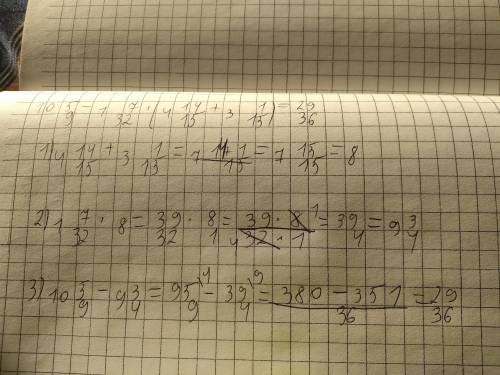 10 5/9 - 1 7/32 · (4 14/15 + 3 1/15) = 29/36
1) 4 14/15 + 3 1/15 = 7 14+1/15 = 7 15/15 = 8
2) 1 7/32 · 8 = 39/32 · 8/1 = 39 · 8 1/4 32 · 1 = 39/4 = 9 3/4
3) 10 5/9 - 9 3/4 = 95/9 \4 - 39/4 \9 = 380 - 351/36 = 29/36